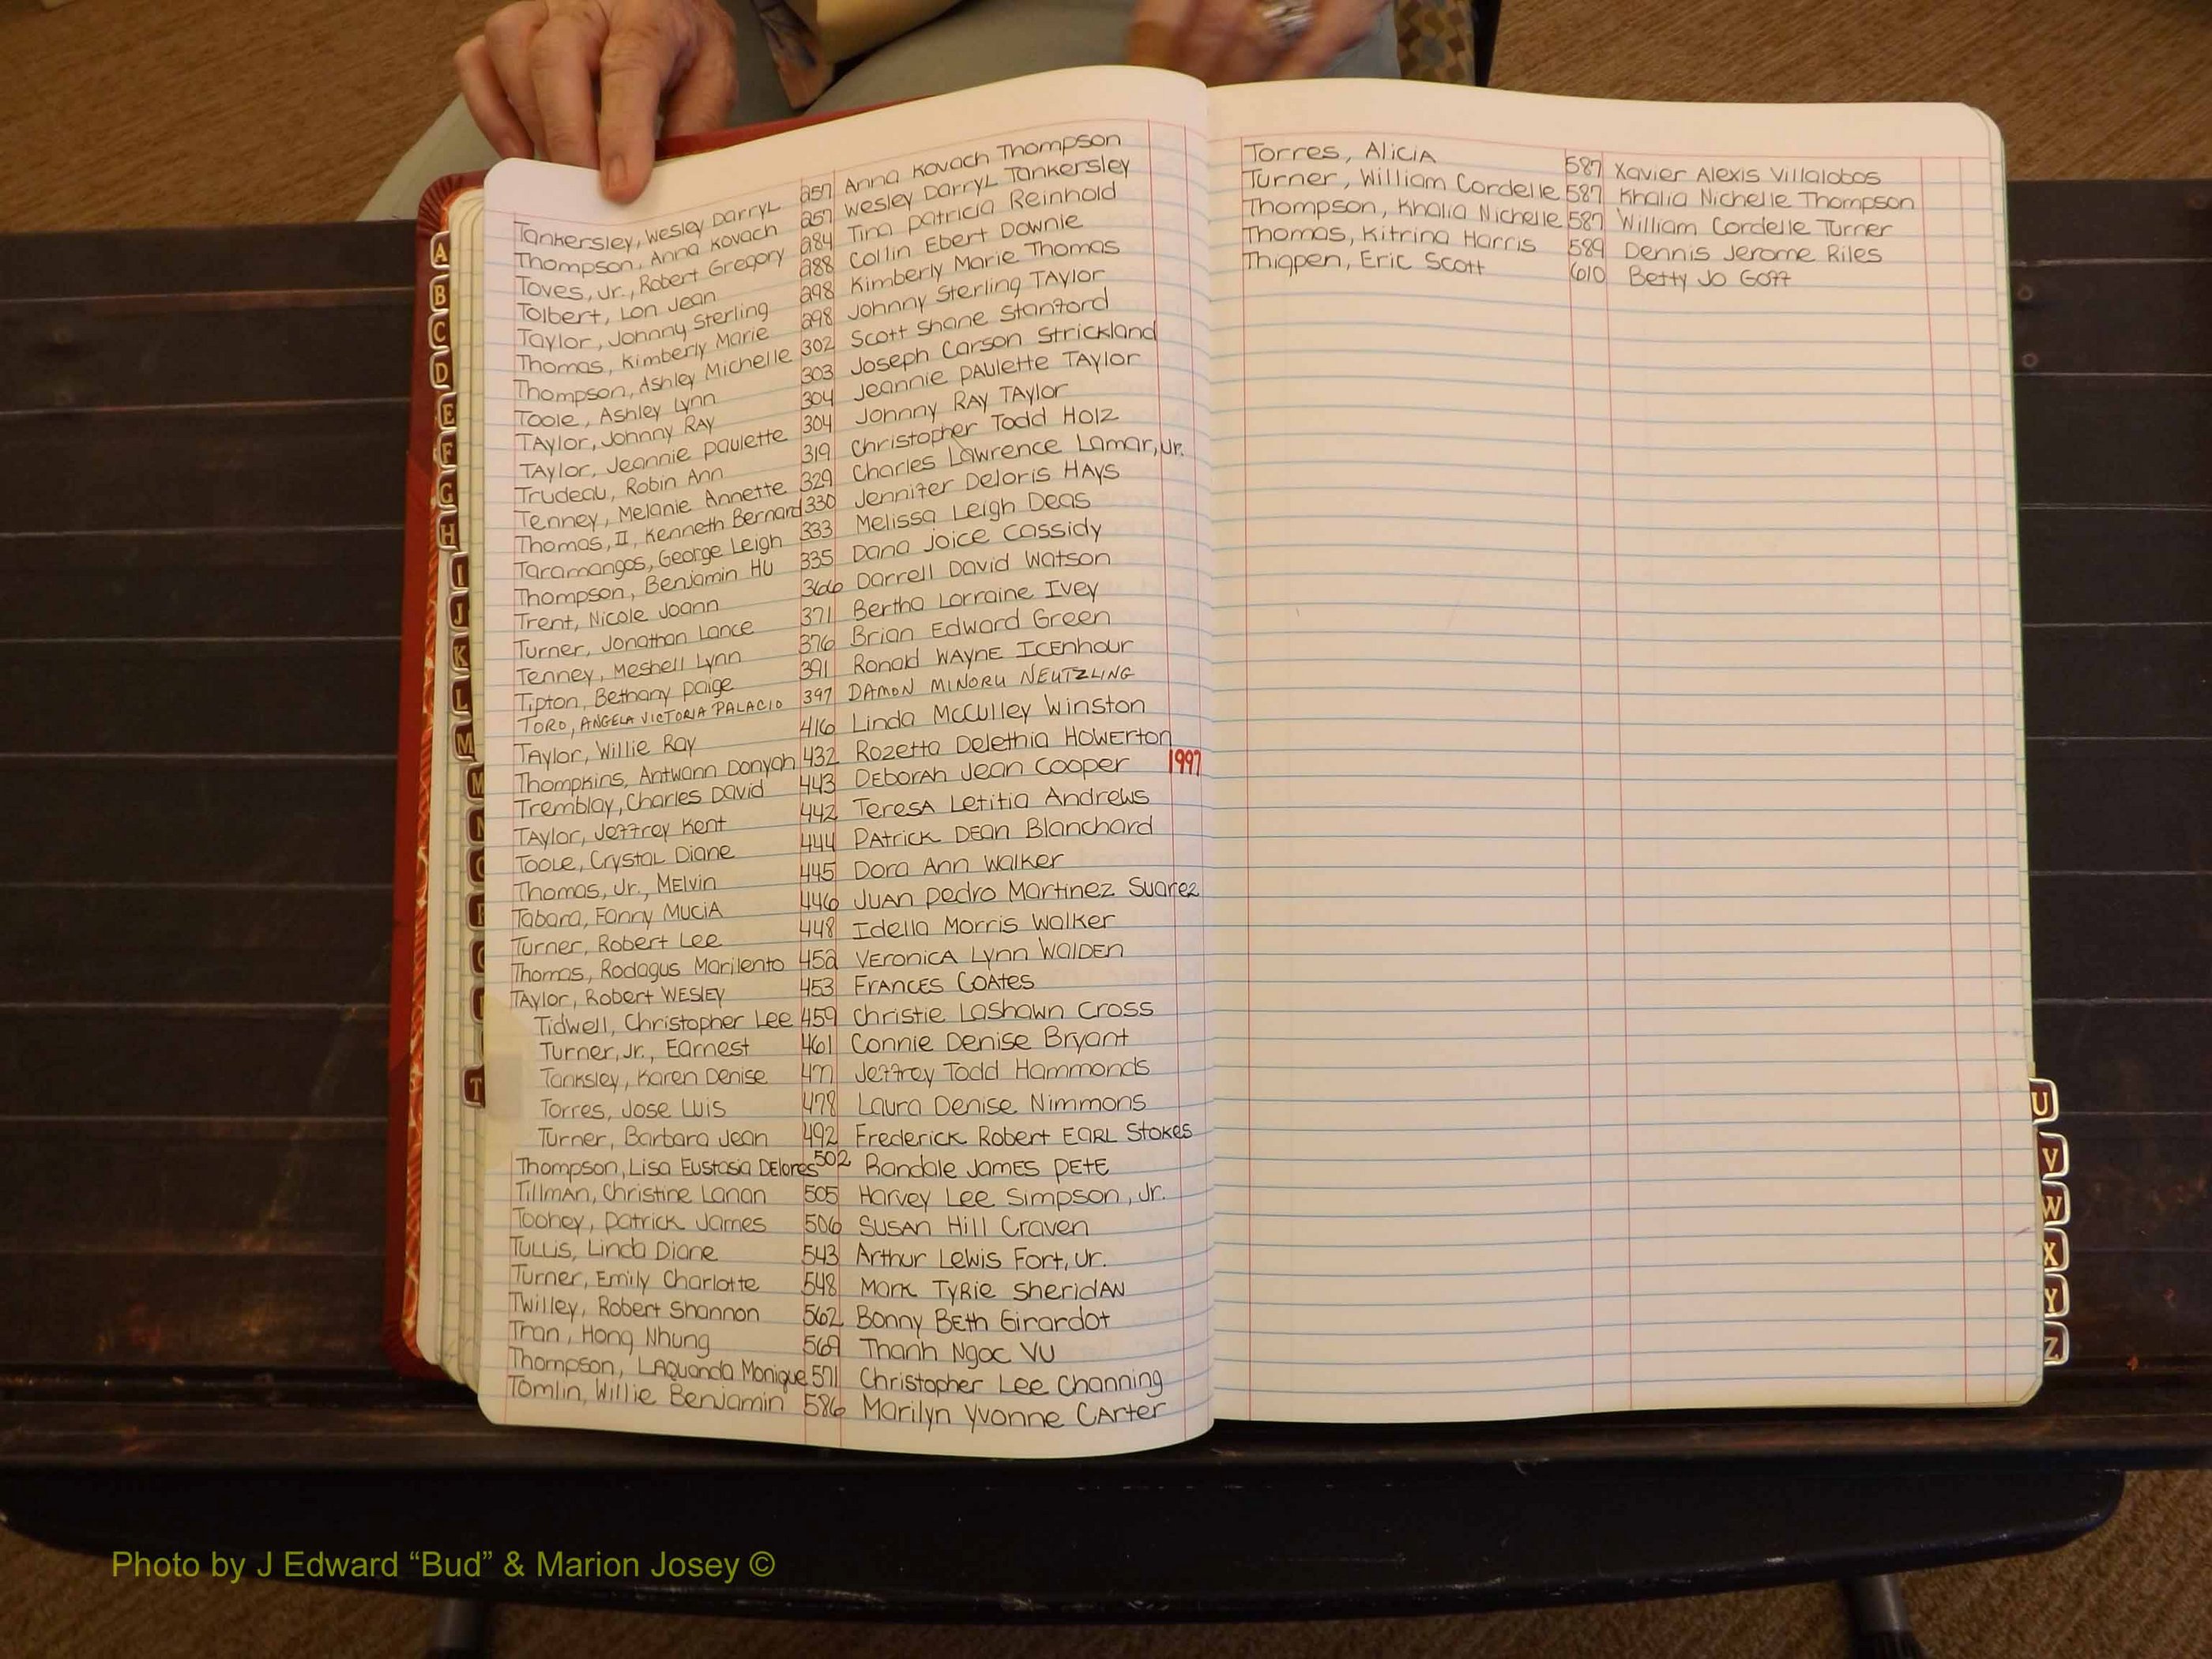 Tankersley, Wesley Darryl 257 Anna Kovach Thompson
Thompson, Anna Kovach 257 Wesley Darryl Tankersley
Toves, Jr., Robert Gregory 284 Tina Patricia Reinhold
Tolbert, Lon Jean 288 Collin Ebert Downie
Taylor, Johnny Sterling 298 Kimberly Marie Thomas
Thomas, Kimberly Marie 298 Johnny Sterling Taylor
Thompson, Ashley Michelle 302 Scott Shane Stanford
Toole, Ashley Lynn 303 Joseph Carson Strickland
Taylor, Johnny Ray 304 Jeannie Paulette Taylor
Taylor, Jeannie Paulette 304 Johnny Ray Taylor
Trudeau, Robin Ann 319 Christopher Todd Holz
Tenney, Melanie Annette 329 Charles Lawrence Lamar, Jr.
Thomas, II, Kenneth Bernard 330 Jennifer Deloris Hays
Taramangos, George Leigh 333 Melissa Leigh Deas
Thompson, Benjamin Hu 335 Dana Joice Cassidy
Trent, Nicole Joann 366 Darrell David Watson
Turner, Jonathan Lance 371 Bertha Lorraine Ivey
Tenney, Meshell Lynn 376 Brian Edward Green
Tipton, Bethany Paige 391 Ronald Wayne Icenhour
TORO, ANGELA VICTORIA PALACIO 397 DAMON MINORU NEUTZLING
Taylor, Willie Ray 416 Linda McCulley Winston
Thompkins, Antwann Donyah 432 Rozetta Delethia Howerton
Tremblay, Charles David 443 Deborah Jean Cooper 1997
Taylor, Jeffrey Kent 442 Teresa Letitia Andrews
Toole, Crystal Diane 444 Patrick Dean Blanchard
Thomas, Jr., Melvin 445 Dora Ann Walker
Tabara, Fanny Mucia 446 Juan Pedro Martinez Suarez
Turner, Robert Lee 448 Idella Morris Walker
Thomas, Rodagus Marilento 452 Veronica Lynn Walden
Taylor, Robert Wesley 453 Frances Coates
Tidwell, Christopher Lee 459 Christie Lashawn Cross
Turner, Jr., Earnest 461 Connie Denise Bryant
Tanksley, Karen Denise 477 Jeffrey Todd Hammonds
Torres, Jose Luis 478 Laura Denise Nimmons
Turner, Barbara Jean 492 Frederick Robert Earl Stokes
Thompson, Lisa Eustasia Delores 502 Randale James Pete
Tillman, Christine Lanan 505 Harvey Lee Simpson, Jr.
Toohey, Patrick James 506 Susan Hill Craven
Tullis, Linda Diane 543 Arthur Lewis Fort, Jr.
Turner, Emily Charlotte 548 Mark Tyrie Sheridan
Twilley, Robert Shannon 562 Bonny Beth Girardot
Tran, Hong Nhung 569 Thanh Ngoc Vu
Thompson, LaQuanda Monique 571 Christopher Lee Channing
Tomlin, Willie Benjamin 586 Marilyn Yvonne Carter
Torres, Alicia 587 Xavier Alexis Villalobos
Turner, William Cordelle 587 Khalia Nichelle Thompson
Thompson, Khalia Nichelle 587 William Cordelle Turner
Thomas, Kitrina Harris 589 Dennis Jerome Riles
Thigpen, Eric Scott 610 Betty Jo Goff
A
B
C
D
E
F
G
H
I
J
K
L
M
T
U
V
W
X
Y
Z
Photo by J Edward “Bud” & Marion Josey ©